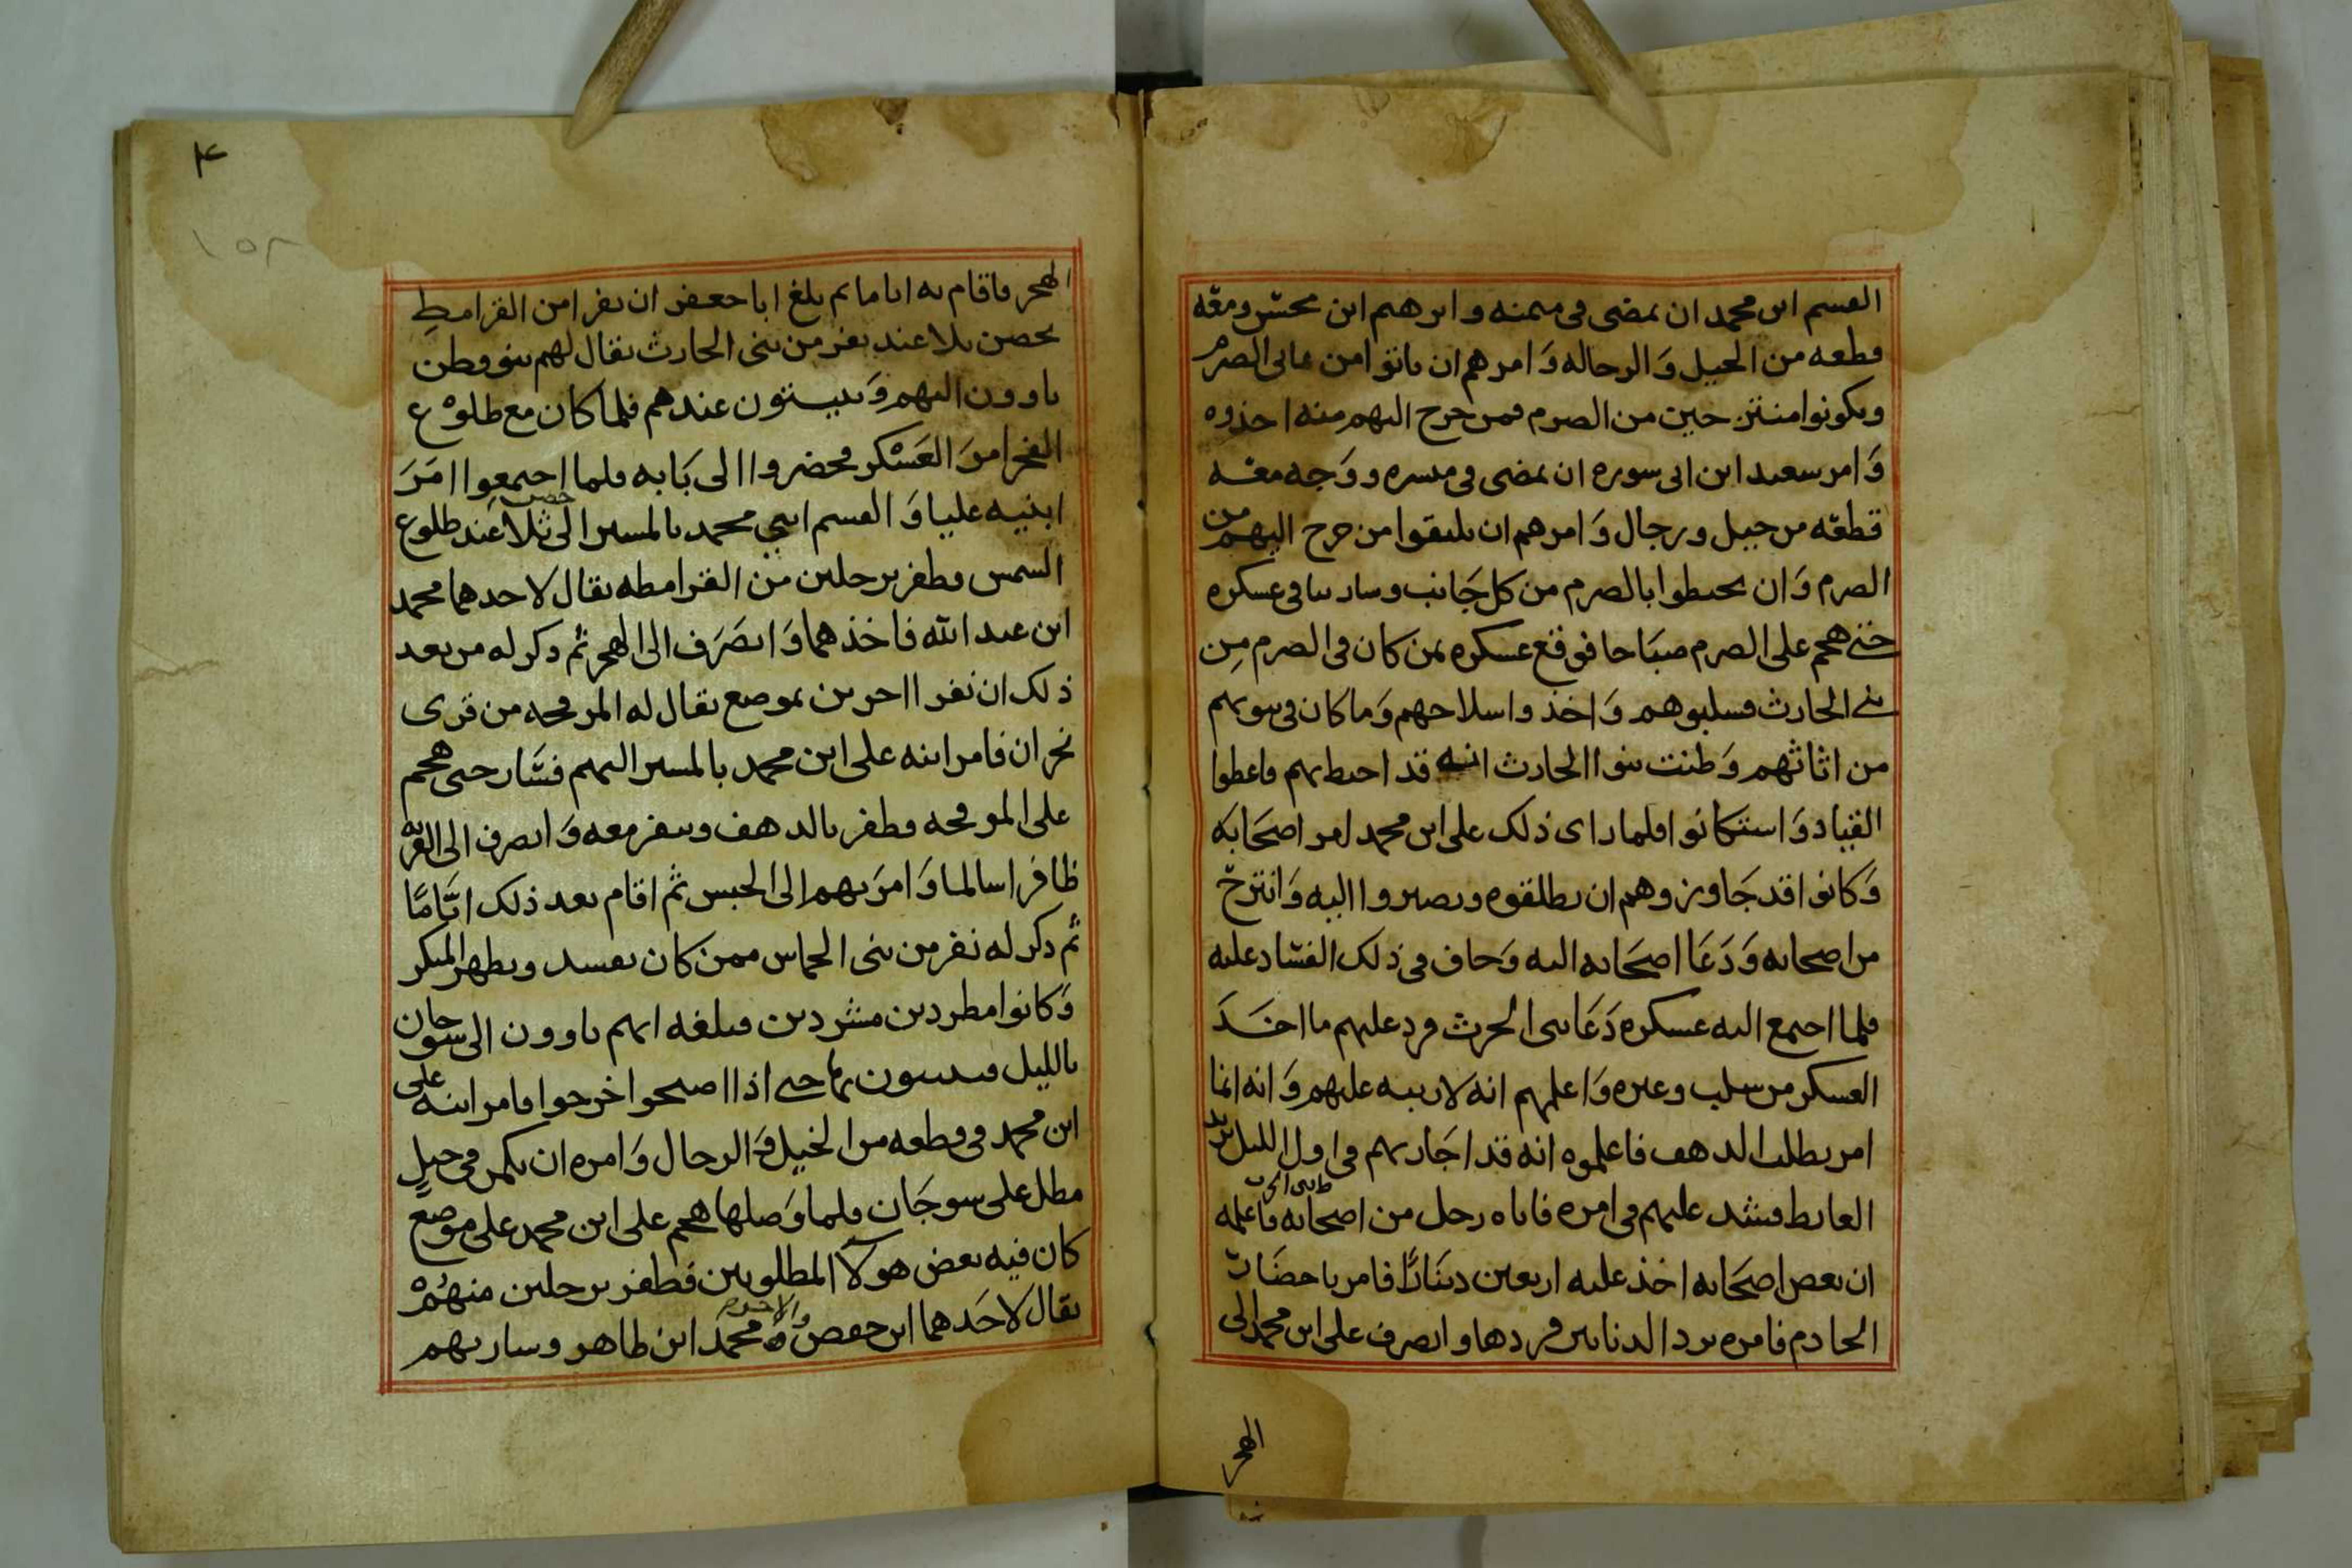 القسم ابن محمد ان يمضى فى ميمنه وابرهيم ابن محسن ومعه
قطعه من الخيل وَالرجاله وَامرهم ان ياتوا من عالى الصرم
ويكونوا منتزحين من الصرم فمن خرج اليهم منه اخذوه
وَامر سعيد ابن ابى سوره ان يمضى فى ميسره ووَجه معه
قطعه من خيل ورجال وَامرهم ان يلتقوا من خرج اليهم من
الصرم وَان يحيطوا بالصرم من كل جَانب وسار بنا فى عسكره
حتى هجم على الصرم صبَاحا فوقع عسكره بمن كان فى الصرم مِن
بنى الحارث فسلبوهم وَاخذوا سلاحهم وَما كان فى بيوتهم
من اثاثهم وَظنت بنوا الحارث انه قد احيط بهم فاعطوا
القياد وَاستكانوا فلما راى ذلك على ابن محمد امر اصحَابه
وَكانوا قد جَاوزوهم ان يطلقوه ويصيروا اليه وَانتزح
من اصحابه وَدَعَا اصحَابه اليه وَخاف فى ذلك الفسَاد عليه
فلما اجتمع اليه عسكره دَعَا بنى الحرث فرد عليهم ما اخَذَ
العسكر من سلب وغيره وَاعلمهم انه لا ريبه عليهم وَانه انما
امر بطلب الدهف فاعلموه انه قد اجَاز بهم فى اول الليل يريد
الغايط فشد عليهم فى امره فاتاه رجل من اصحابه فاعلمه
ان بعض اصحَابه اخذ عليه اربعين دينَارًا فامر باحضَار
الخادم فامره برد الدنانير فردها وانصرف على ابن محمد الى
الهجر
٤
١٥٨
الهجر فاقام به اياما ثم بلغ ابا جعفر ان نفرا من القرامطِ
بحصن ثلا عند نفر من بنى الحارث يقال لهم بنو قطن
ياوون اليهم وَيبيتون عندهم فلما كان مع طلوْع
الفجر امرَ العَسْكر فحضروا الى بَابه فلما اجتمعوا امَرَ
ابنيه عليا وَالقسم ابنى محمد بالمسير الى حصن ثلا عَند طلوع
الشمس فظفر برجلين من القرامطه يقال لاحدهما محمد
ابن عبد الله فاخذهما وَانصَرَف الى الهجر ثم ذكر له من بعد
ذلك ان نفرا اخرين بموضع يقال له من قرى
نجران فامر ابنه على ابن محمد بالمسير اليهم فسَار حتى هجم
على فظفر بالدهف وبنفر معه وَانصرف الى القريه
ظافرا سالما وَامرَ بهم الى الحبس ثم اقام بعد ذلك ايَّامًا
ثم ذكر له نفر من بنى الحماس ممن كان يفسد ويظهر المنكر
وَكانوا مطردين مشردين فبلغه انهم ياوون الى سوجان
بالليل فيبيتون بها حتى اذا اصبحوا خرجوا فامر ابنه على
ابن محمد فى قطعه من الخيل وَالرجال وَامره ان يكمن فى جبلٍ
مطل على سوجَان فلما وَصلها هجم على ابن محمد على موضع
كان فيه بعض هولآ المطلوبين فظفر برجلين منهُمْ
يقال لاحَدهما ابن حفص والاخر محمد ابن طاهر وسار بهم